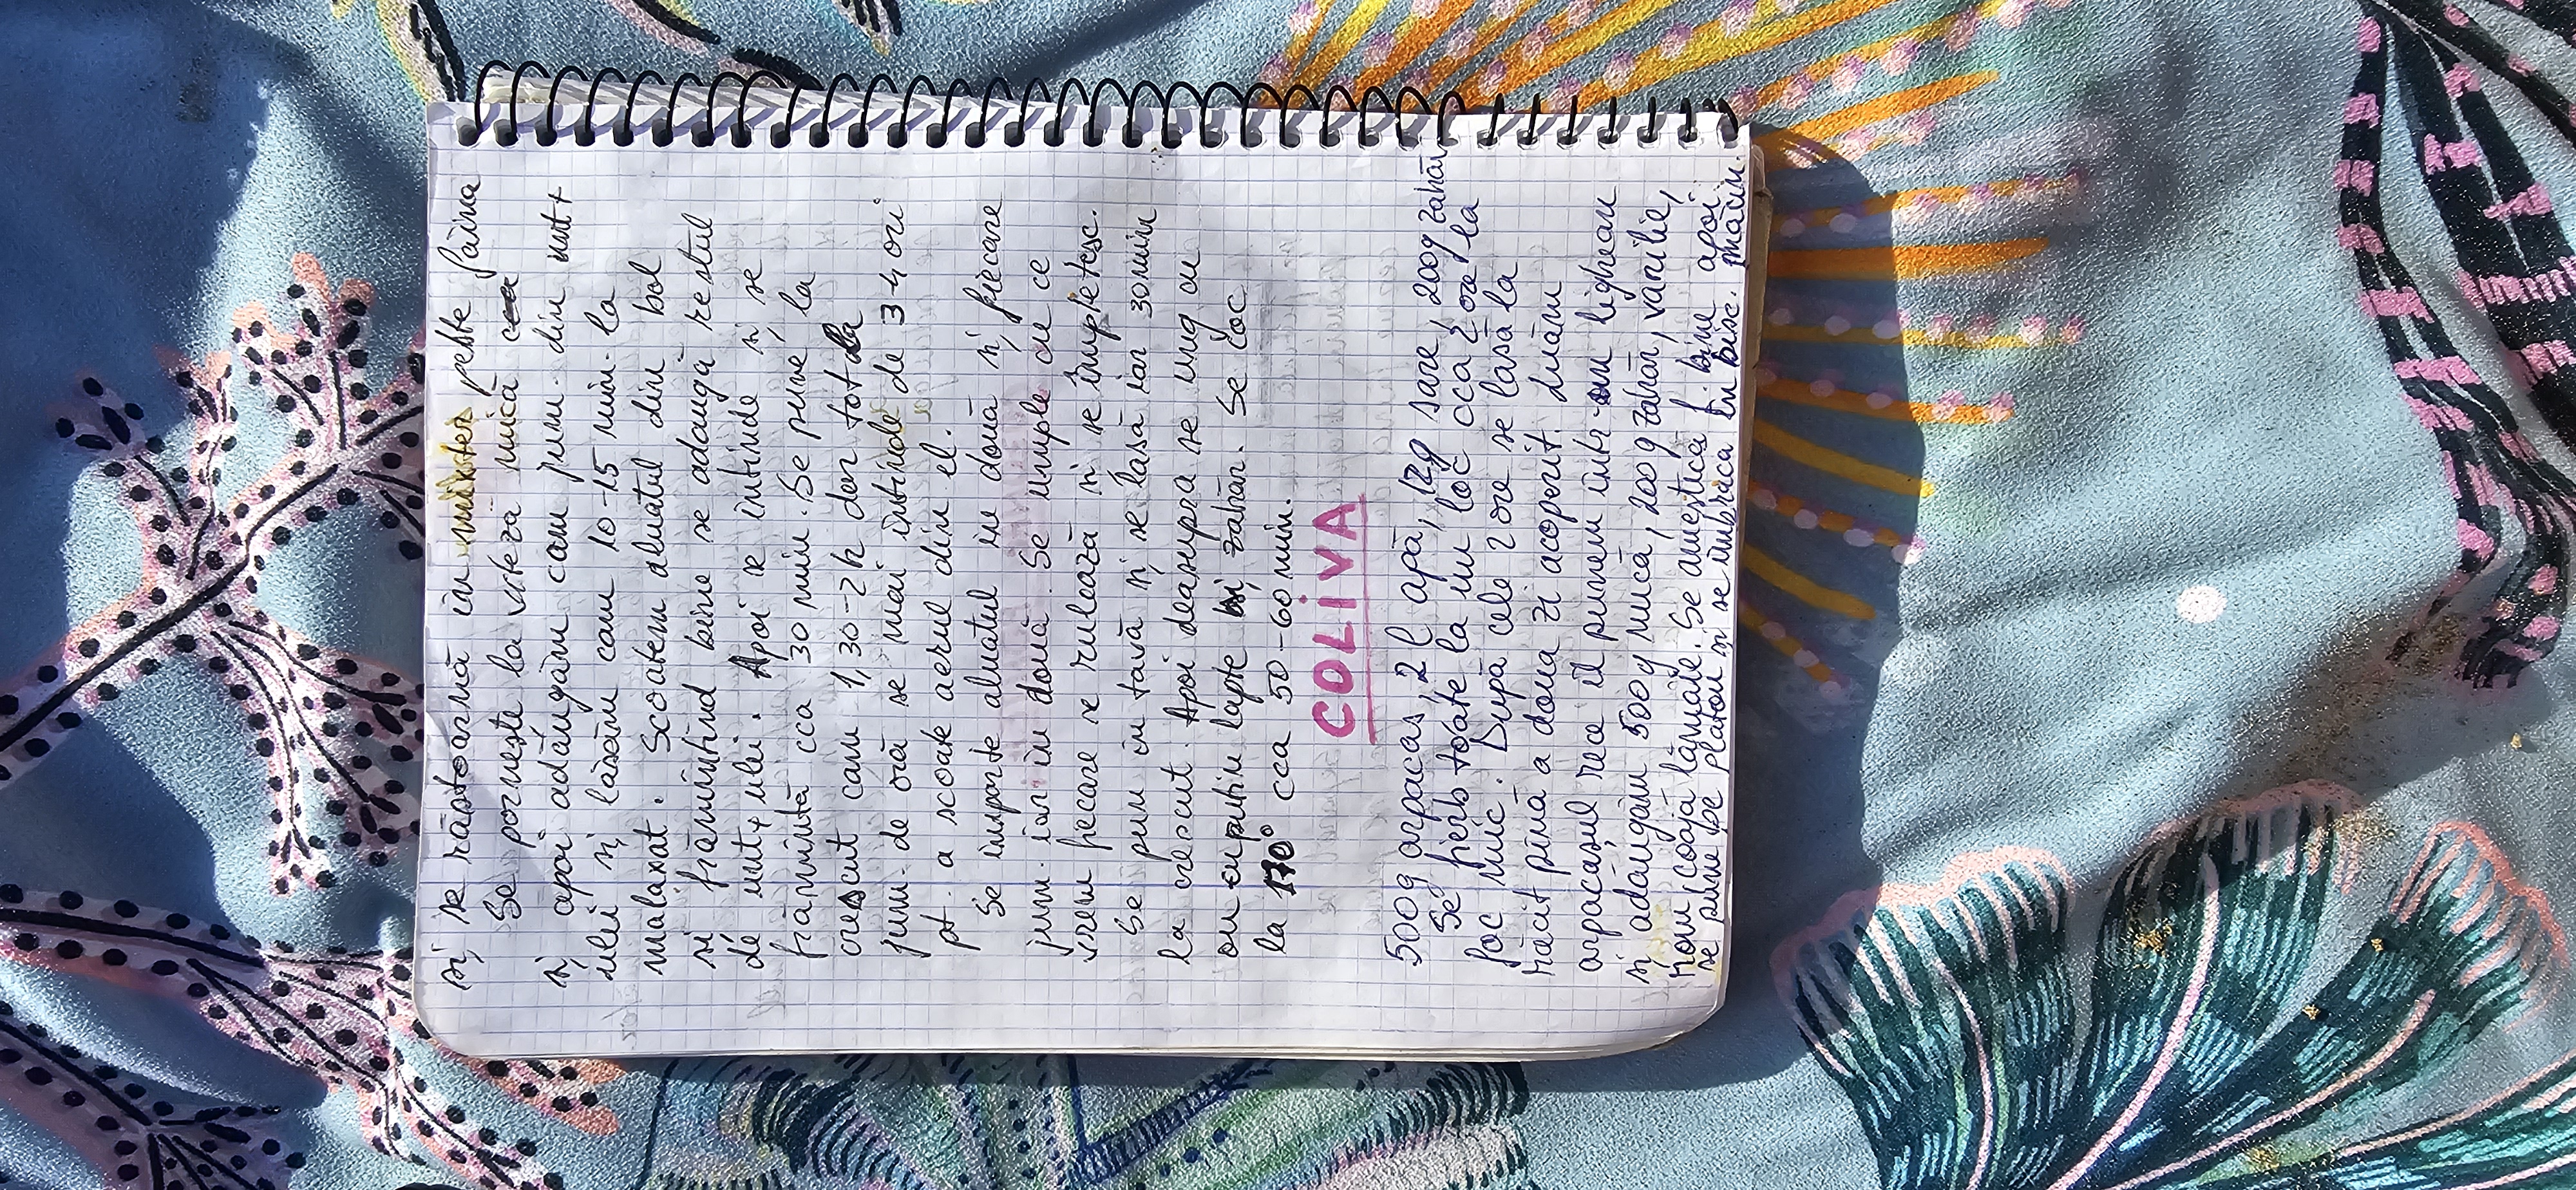 și se răstoarnă în mixter peste făina
Se pornește la viteză mică cca
și apoi adăugăm cam jum. din unt+
ulei și lăsăm cam 10-15 min. la
malaxat. Scoatem aluatul din bol
și frămîntînd bine se adaugă restul
de unt+ulei. Apoi se întinde și se
frămîntă cca 30 min. Se pune la
crescut cam 1,30-2h dar tot la
jum. de oră se mai întinde de 3-4 ori
pt. a scoate aerul din el.
Se împarte aluatul în două și fiecare
jum. iar în două. Se umple cu ce
vrem fiecare se rulează și se împletesc.
Se pun în tavă și se lasă iar 30 min
la crescut. Apoi deasupra se ung cu
ou cu puțin lapte și zahăr. Se coc
la 170° cca 50-60 min.
COLIVA
500g arpacaș, 2 l apă, 12g sare, 200g zahăr
Se fierb toate la un loc cca 2 ore la
foc mic. După cele 2 ore se lasă la
răcit pînă a doua zi acoperit. Luăm
arpacașul rece îl punem într-un lighean
și adăugăm 500g nucă, 200g zahăr, vanilie,
rom, coajă lămâie. Se amestică f. bine apoi
se pune pe platou și se îmbracă în bisc. măcin.